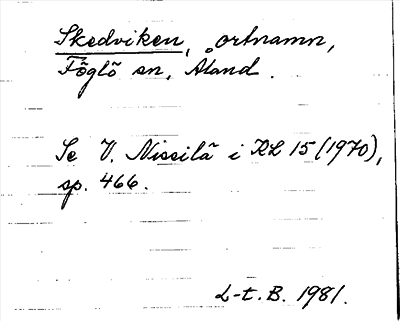 Skedviken, ortnamn,
Föglö sn, Åland.
Se V. Nissilä i RL 15 (1970),
sp. 466.
L-t. B. 1981.